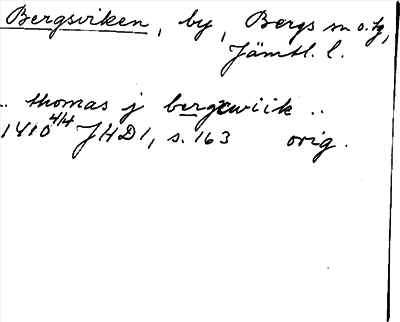 Bergsviken, by, Bergs sn o. tg,
Jämtl. l.
.. thomas j bergxwiik ..
1410 4/4 JHD1, s. 163 orig.